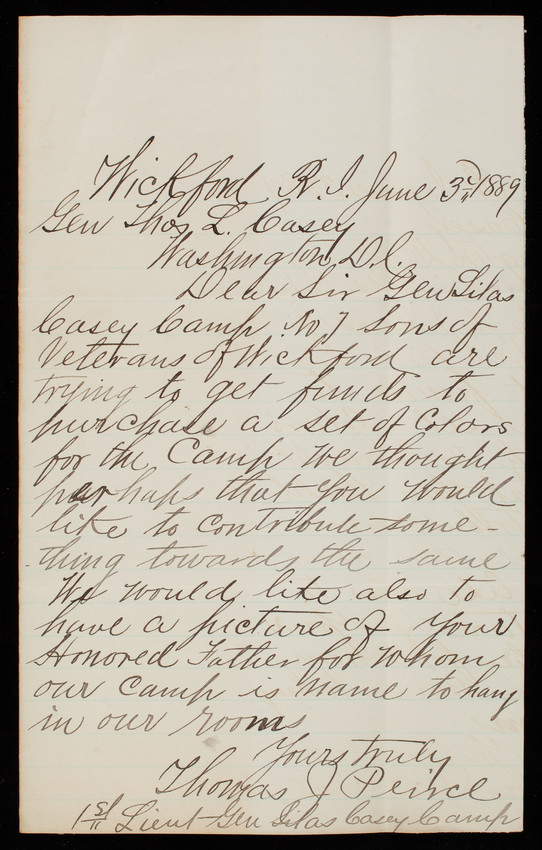 Wickford R. I. June 3d 1889
Gen Thos L. Casey
Washington D. C.
Dear Sir Gen Silas
Casey Camp No 7 Sons of
Veterans of Wickford are
trying to get funds to
purchase a set of Colors
for the Camp We thought
perhaps that you would
like to contribute some-
thing towards the same
We would like also to
have a picture of your
Honored Father for whom
our Camp is name to hang
in our rooms
Yours truly
Thomas J Peirce
1st Lieut Gen Silas Casey Camp